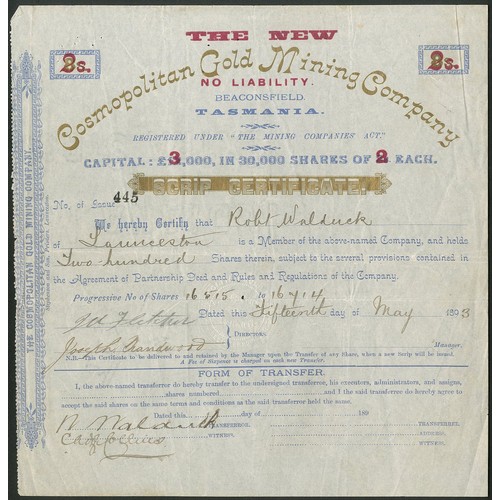 THE NEW
2s. 2s.
Cosmopolitan Gold Mining Company
NO LIABILITY.
BEACONSFIELD,
TASMANIA.
REGISTERED UNDER "THE MINING COMPANIES ACT."
CAPITAL: £3,000, IN 30,000 SHARES OF 2 EACH.
SCRIP CERTIFICATE.
No. of Issue 445
We hereby Certify that Robt Walduck
of Launceston is a Member of the above-named Company, and holds
Two hundred Shares therein, subject to the several provisions contained in
the Agreement of Partnership Deed and Rules and Regulations of the Company.
Progressive No of Shares 16515 to 16714
Dated this Fifteenth day of May 1893
DIRECTORS.
Joseph Manager.
N.B.—This Certificate to be delivered to and retained by the Manager upon the Transfer of any Share, when a new Scrip will be issued.
A Fee of Sixpence is charged on each new Transfer.
FORM OF TRANSFER.
I, the above-named transferror do hereby transfer to the undersigned transferree, his executors, administrators, and assigns,
shares numbered and I the said transferree do hereby agree to
accept the said shares on the same terms and conditions as the said transferror held the same.
Dated this day of 189
R Walduck TRANSFERROR. TRANSFERREE.
WITNESS. WITNESS.
ADDRESS.
THE COSMOPOLITAN GOLD MINING COMPANY.